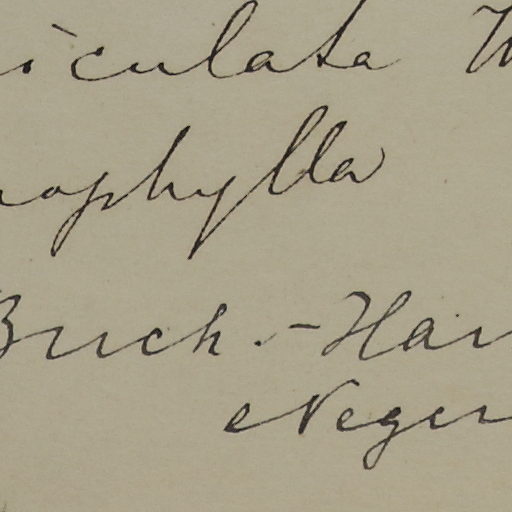 iculata W
ophylla
Buch.-Ham
Neger